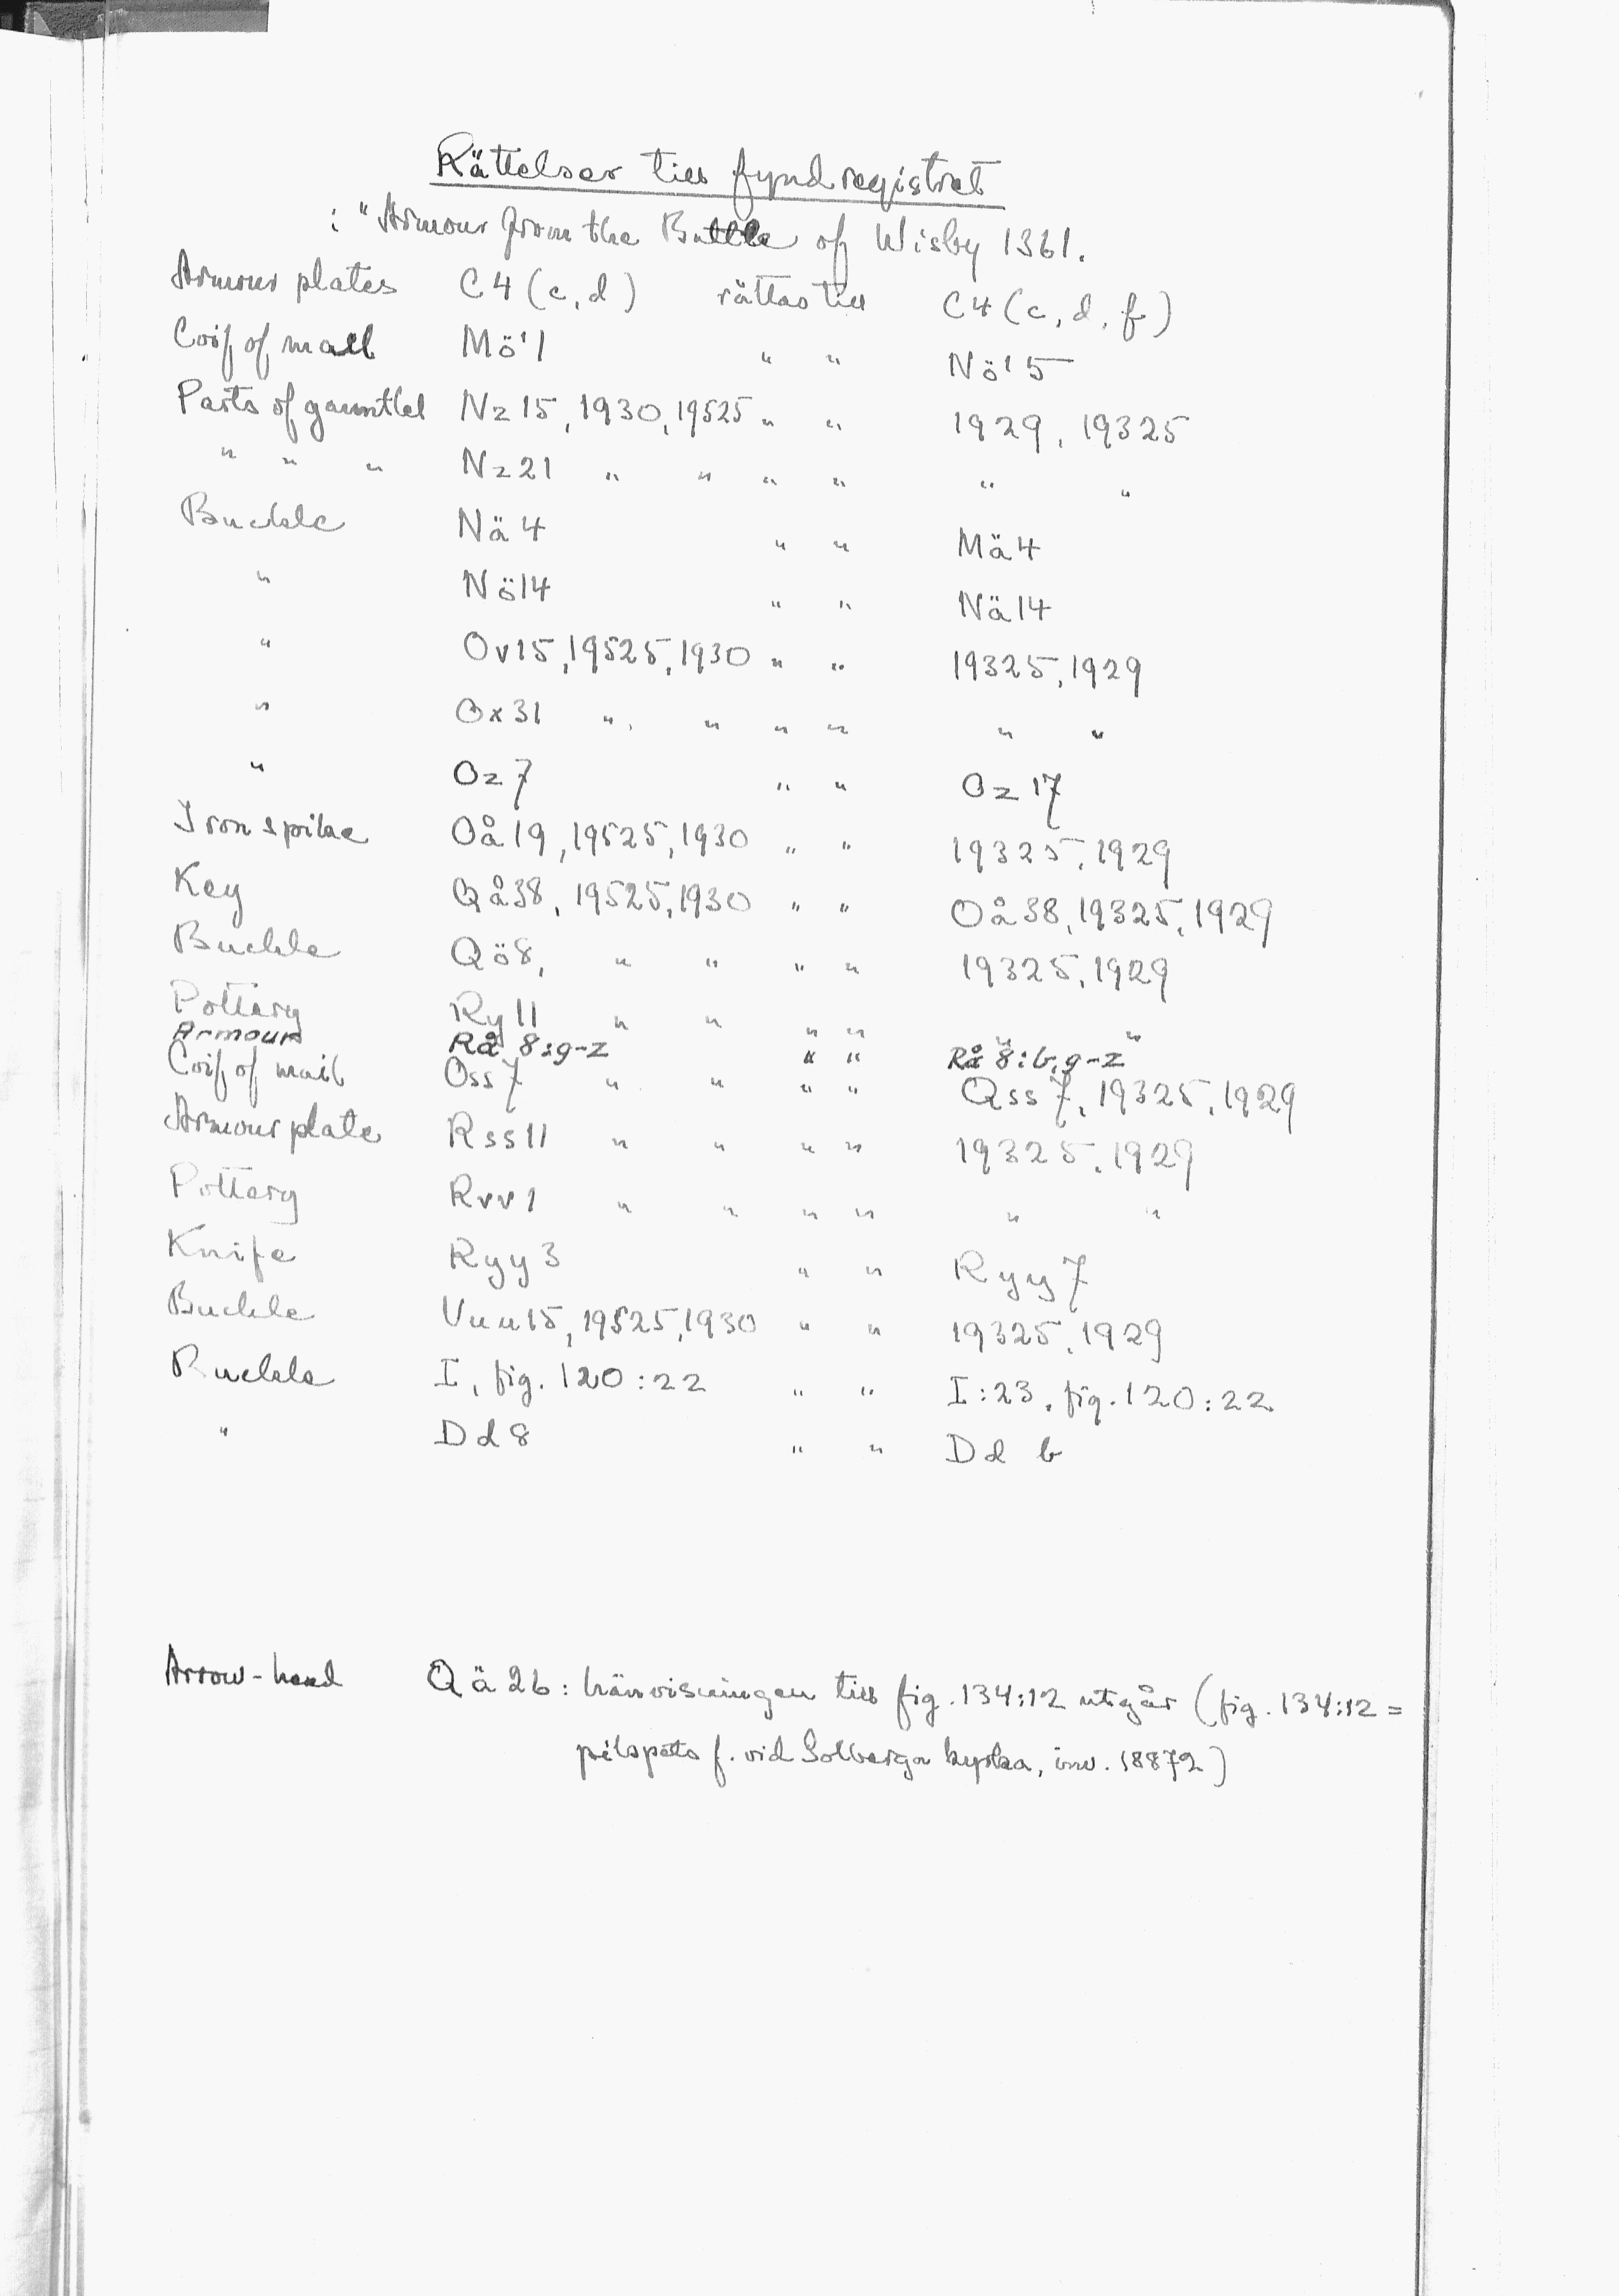 Rättelser till fyndregistret
i "Armour from the Battle of Wisby 1361.
Armour plates C4 (c, d) rättas till C4 (c, d, f)
Coif of mail Mö'1 " " Nö'5
Parts of gauntlet Nz15, 1930, 19525 " " 1929, 19325
" " " Nz21 " " " " " "
Buckle Nä4 " " Mä4
" Nö14 " " Nä14
" Ov15, 19525, 1930 " " 19325, 1929
" Ox31 " " " " " "
" Oz7 " " Oz17
Iron spike Oå19, 19525, 1930 " " 19325, 1929
Key Qå38, 19525, 1930 " " Oå38, 19325, 1929
Buckle Qö8, " " " " 19325, 1929
Pottery Ry11 " " " " " "
Armour Rå 8:g-z " " Rå 8:b,g-z
Coif of mail Oss7 " " " " Qss7, 19325, 1929
Armour plate Rss11 " " " " 19325, 1929
Pottery Rvv1 " " " " " "
Knife Ryy3 " " Ryy7
Buckle Vuu15, 19525, 1930 " " 19325, 1929
Buckle I, fig. 120:22 " " I:23, fig. 120:22
" Dd8 " " Dd b
Arrow-head Qä26: hänvisningen till fig. 134:12 utgår (fig. 134:12 =
pilspets f. vid Solberga kyrka, inv. 18872)